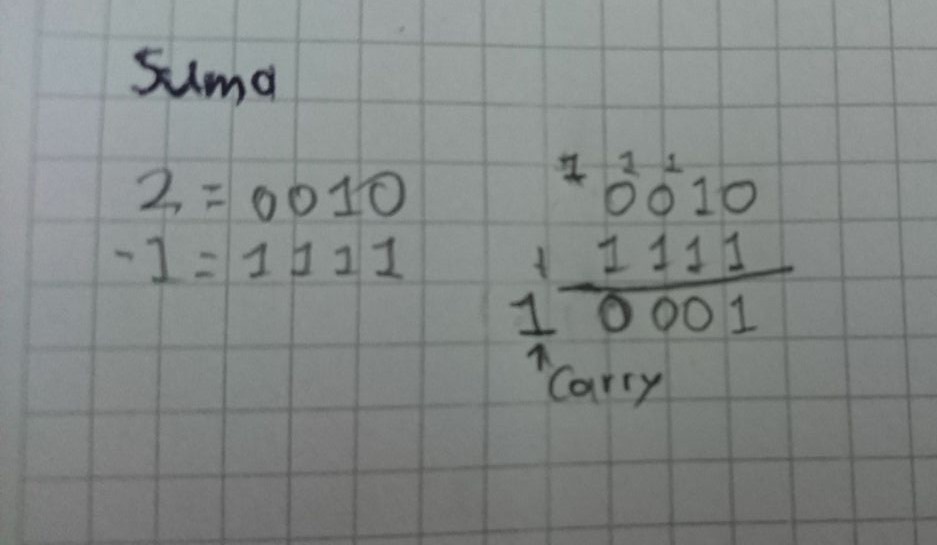 Suma
2 = 0010
-1 = 1111
1 1 1
0010
+ 1111
1 0001
↑ Carry